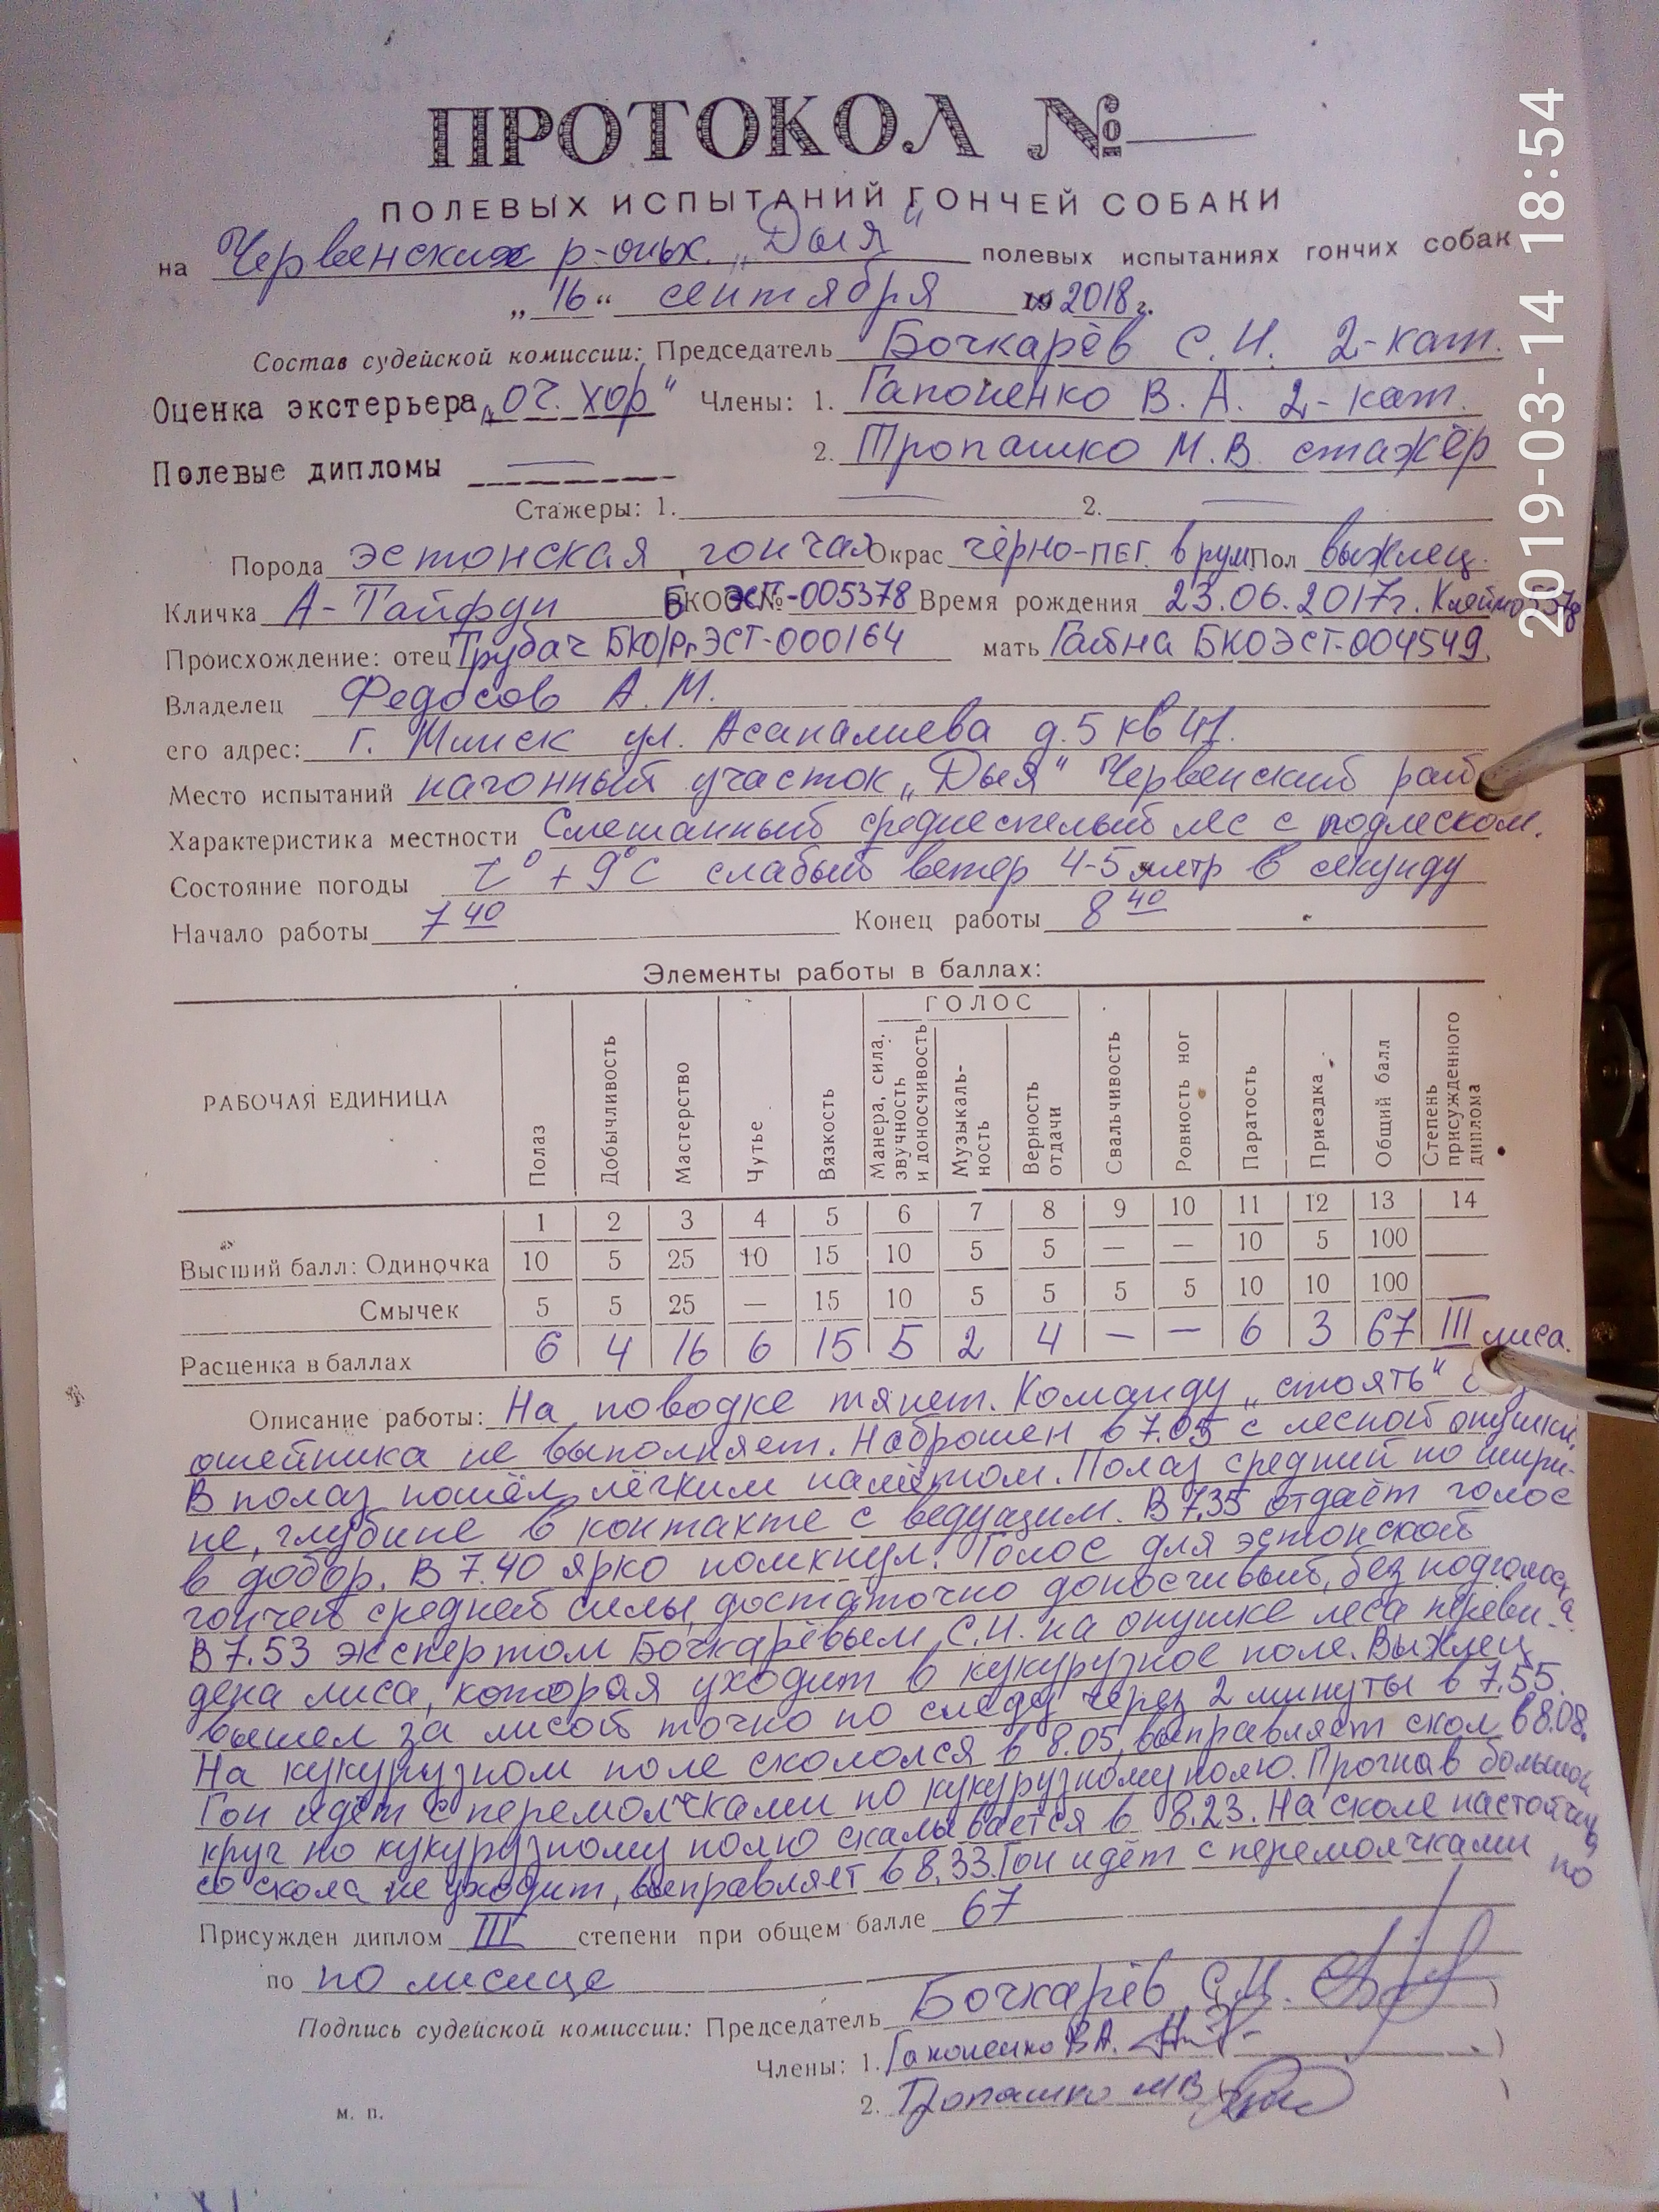 ПРОТОКОЛ №
ПОЛЕВЫХ ИСПЫТАНИЙ ГОНЧЕЙ СОБАКИ
на Червенских р-оных. „Дыя" полевых испытаниях гончих собак
„16" сентября 19 2018 г.
Состав судейской комиссии: Председатель Бочкарёв С.И. 2-кат.
Оценка экстерьера „оч. хор" Члены: 1. Гапоненко В.А. 2-кат.
Полевые дипломы — 2. Тропашко М.В. стажёр
Стажеры: 1. — 2. —
Порода эстонская гончая Окрас чёрно-пег. в рум. Пол выжлец.
Кличка А-Тайфун БКОЭСТ-005378 Время рождения 23.06.2017г. Клеймо 5378
Происхождение: отец Трубач БКО/Рг ЭСТ-000164 мать Гайна БКОЭСТ-004549.
Владелец Федосов А.М.
его адрес: г. Минск ул. Асаналиева д.5 кв 41.
Место испытаний нагонный участок „Дыя" Червенский рай
Характеристика местности Смешанный среднеспелый лес с подлеском.
Состояние погоды t° +9°С слабый ветер 4-5 метр в секунду
Начало работы 7 40 Конец работы 8 40
Элементы работы в баллах:
РАБОЧАЯ ЕДИНИЦА Полаз Добычливость Мастерство Чутье Вязкость ГОЛОС Манера, сила, звучность и доносчивость Музыкаль- ность Верность отдачи Свальчивость Ровность ног Паратость Приездка Общий балл Степень присужденного диплома
1 2 3 4 5 6 7 8 9 10 11 12 13 14
Высший балл: Одиночка 10 5 25 10 15 10 5 5 — — 10 5 100
Смычек 5 5 25 — 15 10 5 5 5 5 10 10 100
Расценка в баллах 6 4 16 6 15 5 2 4 — — 6 3 67 III лиса.
Описание работы: На поводке тянет. Команду „стоять"
ошейника не выполняет. Наброшен в 7.05 с лесной опушки.
В полаз пошёл лёгким намётом. Полаз средний по шири-
не, глубине в контакте с ведущим. В 7.35 отдаёт голос
в добор. В 7.40 ярко помкнул. Голос для эстонской
гончей средней силы, достаточно доносчивый, без подголоска
В 7.53 экспертом Бочкарёвым С.И. на опушке леса переви-
дена лиса, которая уходит в кукурузное поле. Выжлец
вышел за лисой точно по следу через 2 минуты в 7.55.
На кукурузном поле скололся в 8.05, выправляет скол в 8.08.
Гон идёт с перемолчками по кукурузному полю. Прогнав большой
круг по кукурузному полю скалывается в 8.23. На сколе настойчив,
со скола не уходит, выправляет в 8.33. Гон идёт с перемолчками по
Присужден диплом III степени при общем балле 67
по по лисице
Подпись судейской комиссии: Председатель Бочкарёв С.И.
Члены: 1. Гапоненко В.А.
2. Тропашко МВ
м. п.
2019-03-14 18:54